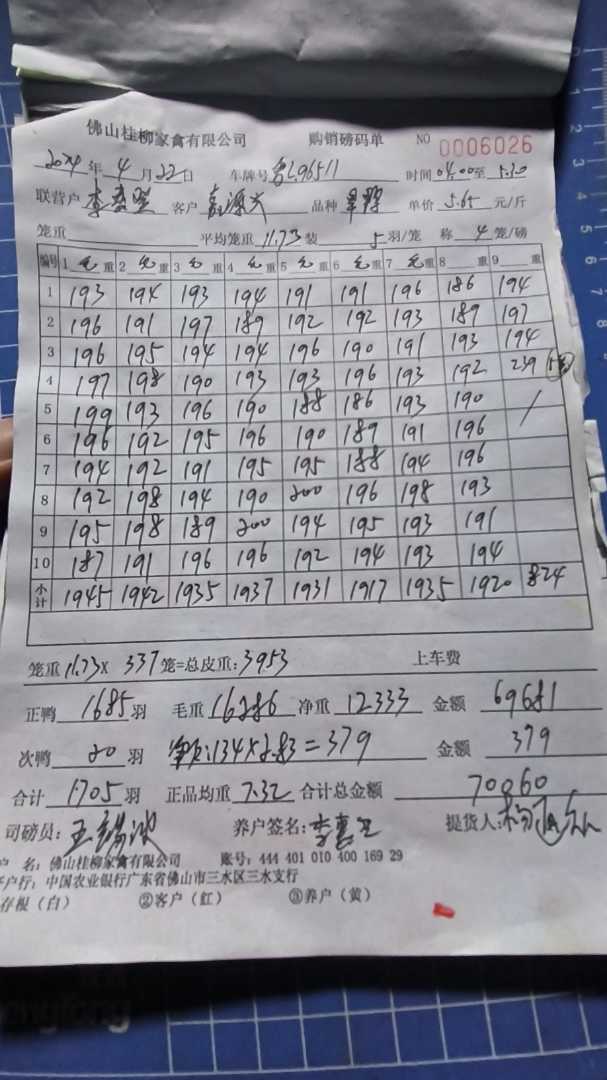 佛山桂柳家禽有限公司 购销磅码单 NO 0006026
2024年4月22日 车牌号 L96511 时间 04:00至5:30
联营户 李 客户 品种 单价 5.65 元/斤
笼重 平均笼重 11.73 装 5 羽/笼 称 4 笼/磅
编号 1 毛重 2 毛重 3 毛重 4 毛重 5 毛重 6 毛重 7 毛重 8 重 9 重
1 193 194 193 194 191 191 196 186 194
2 196 191 197 189 192 192 193 189 197
3 196 195 194 194 196 190 191 193 194
4 197 198 190 193 193 196 193 192 239
5 199 193 196 190 188 186 193 190 /
6 196 192 195 196 190 189 191 196
7 194 192 191 195 195 188 194 196
8 192 198 194 190 200 196 198 193
9 195 198 189 200 194 195 193 191
10 187 191 196 196 192 194 193 194
小计 1945 1942 1935 1937 1931 1917 1935 1920 824
笼重 11.73 x 337 笼=总皮重: 3953 上车费
正鸭 1685 羽 毛重 16286 净重 12333 金额 69681
次鸭 20 羽 :134 x 2.83 = 379 金额 379
合计 1705 羽 正品均重 7.32 合计总金额 70060
司磅员: 王 养户签名: 李 提货人: 杨
户 名: 佛山桂柳家禽有限公司 账号: 444 401 010 400 169 29
户行: 中国农业银行广东省佛山市三水区三水支行
存根（白） ②客户（红） ③养户（黄）